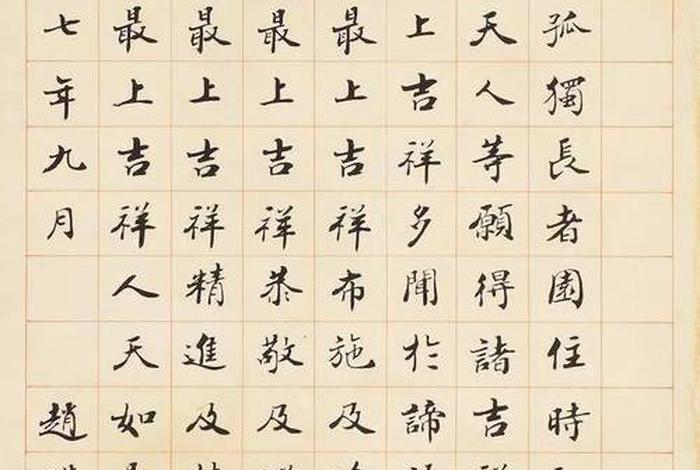 孤獨長者園住時
天人等願得諸吉
上吉祥多聞於諦
最上吉祥布施及
最上吉祥恭敬及
最上吉祥精進及
最上吉祥人天如
七年九月 趙